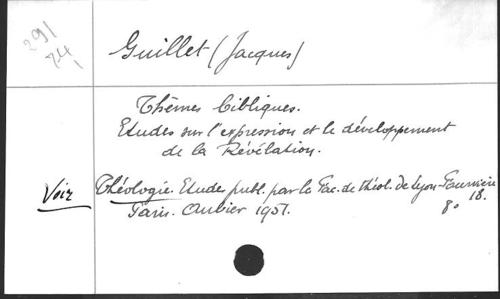 291
74
Guillet (Jacques)
Thèmes bibliques.
Etudes sur l'expression et le développement
de la Révélation.
Voir Théologie. Etudes publ. par la Fac. de théol. de Lyon-Fourvière
18.
Paris. Aubier 1951. 8°